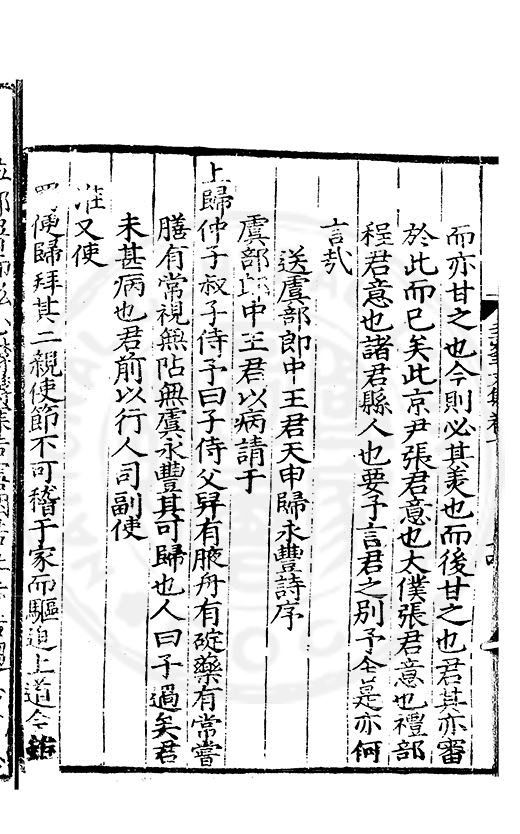 而亦甘之也今則必其羨也而後甘之也君其亦審
於此而已矣此京尹張君意也太僕張君意也禮部
程君意也諸君縣人也要予言君之別予全是亦何
言哉
送虞部郎中王君天申歸永豐詩序
虞部郎中王君以病請于
上歸仲子叔子侍予曰子侍父舁有腋舟有碇藥有常嘗
膳有常視無阽無虞永豐其可歸也人曰子過矣君
未甚病也君前以行人司副使
淮又使
便歸拜其二親使節不可稽于家而驅迫上道今